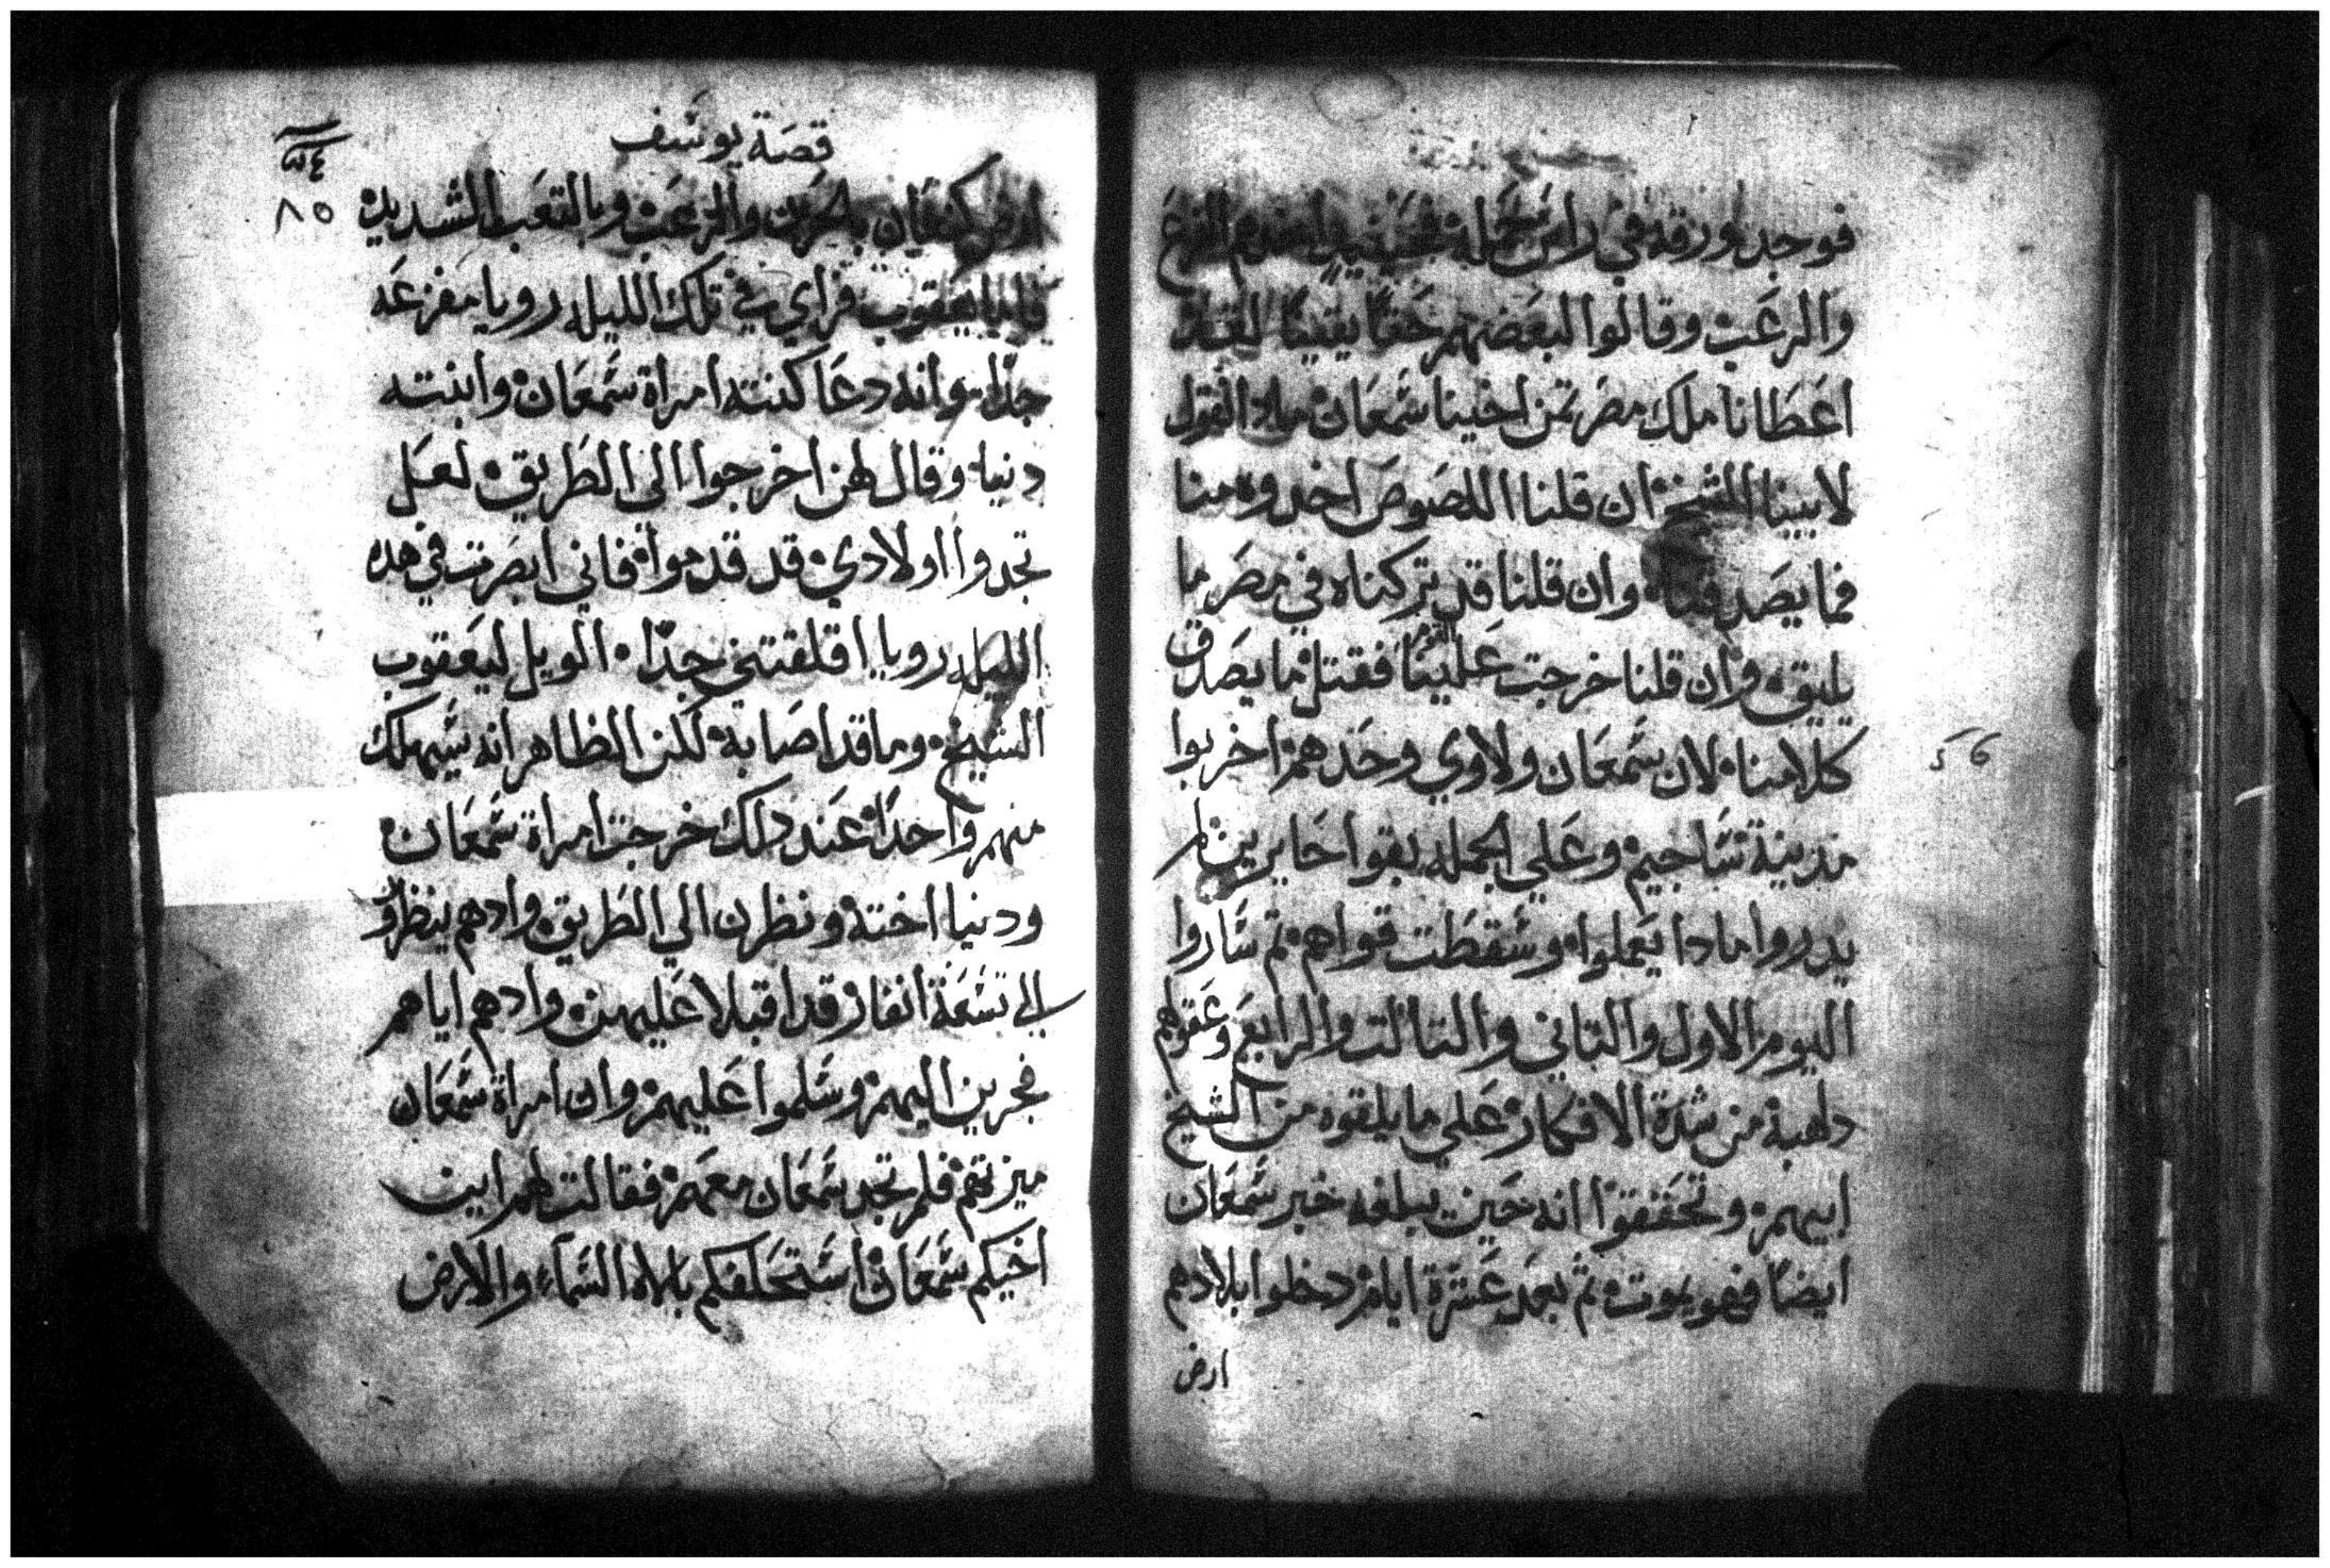 فوجد ورقه في راس حمله
والرعب وقالوا لبعضهم حقًا يقينًا لقد
اعطانا ملك مصر تمن اخينا شمعان ميلاد القول
لابينا الشيخ ان قلنا اللصوص اخدوه منا
فما يصدقنا وان قلنا قد تركناه في مصر ما
يليق وان قلنا خرجت علينا القوم فقتل ما يصدق
كلامنا لان شمعان ولاوي وحدهم اخربوا
مدينة شاجيم وعلي الجمله بقوا حايرين لم
يدروا مادا يعملوا وسقطت قواهم تم ساروا
اليوم الاول والتاني والتالت والرابع وعقولهم
داهبة من شدة الافكار علي ما يلقوه من الشيخ
ابيهم وتحققوا انه حين يبلغه خبر شمعان
ايضًا فهو يموت تم بعد عشرة ايام دخلوا بلادهم
ارض
٥٦
قصة يوسف
٨٥
ارض كنعان بالحزن والرعب وبالتعب الشديد
فاما يعقوب فراي في تلك الليله رويا مفزعه
جدًا وانه دعا كنته امراة شمعان وابنته
دنيا وقال لهن اخرجوا الي الطريق لعل
تجدوا اولادي قد قدموا فاني ابصرت في هده
الليله رويا اقلقتني جدًا الويل ليعقوب
الشيخ وما قد اصابه لكن الظاهر انه سيهلك
منهم واحدًا عند دلك خرجت امراة شمعان
ودنيا اختة ونظرن الي الطريق وادهم ينظرو
الي تسعة انفار قد اقبلا عليهن وادهم اياهم
فجرين اليهم وسلموا عليهم وان امراة شمعان
ميزتهم فلم تجد شمعان معهم فقالت لهم اين
اخيكم شمعان استحلفكم بالاه السماء والارض